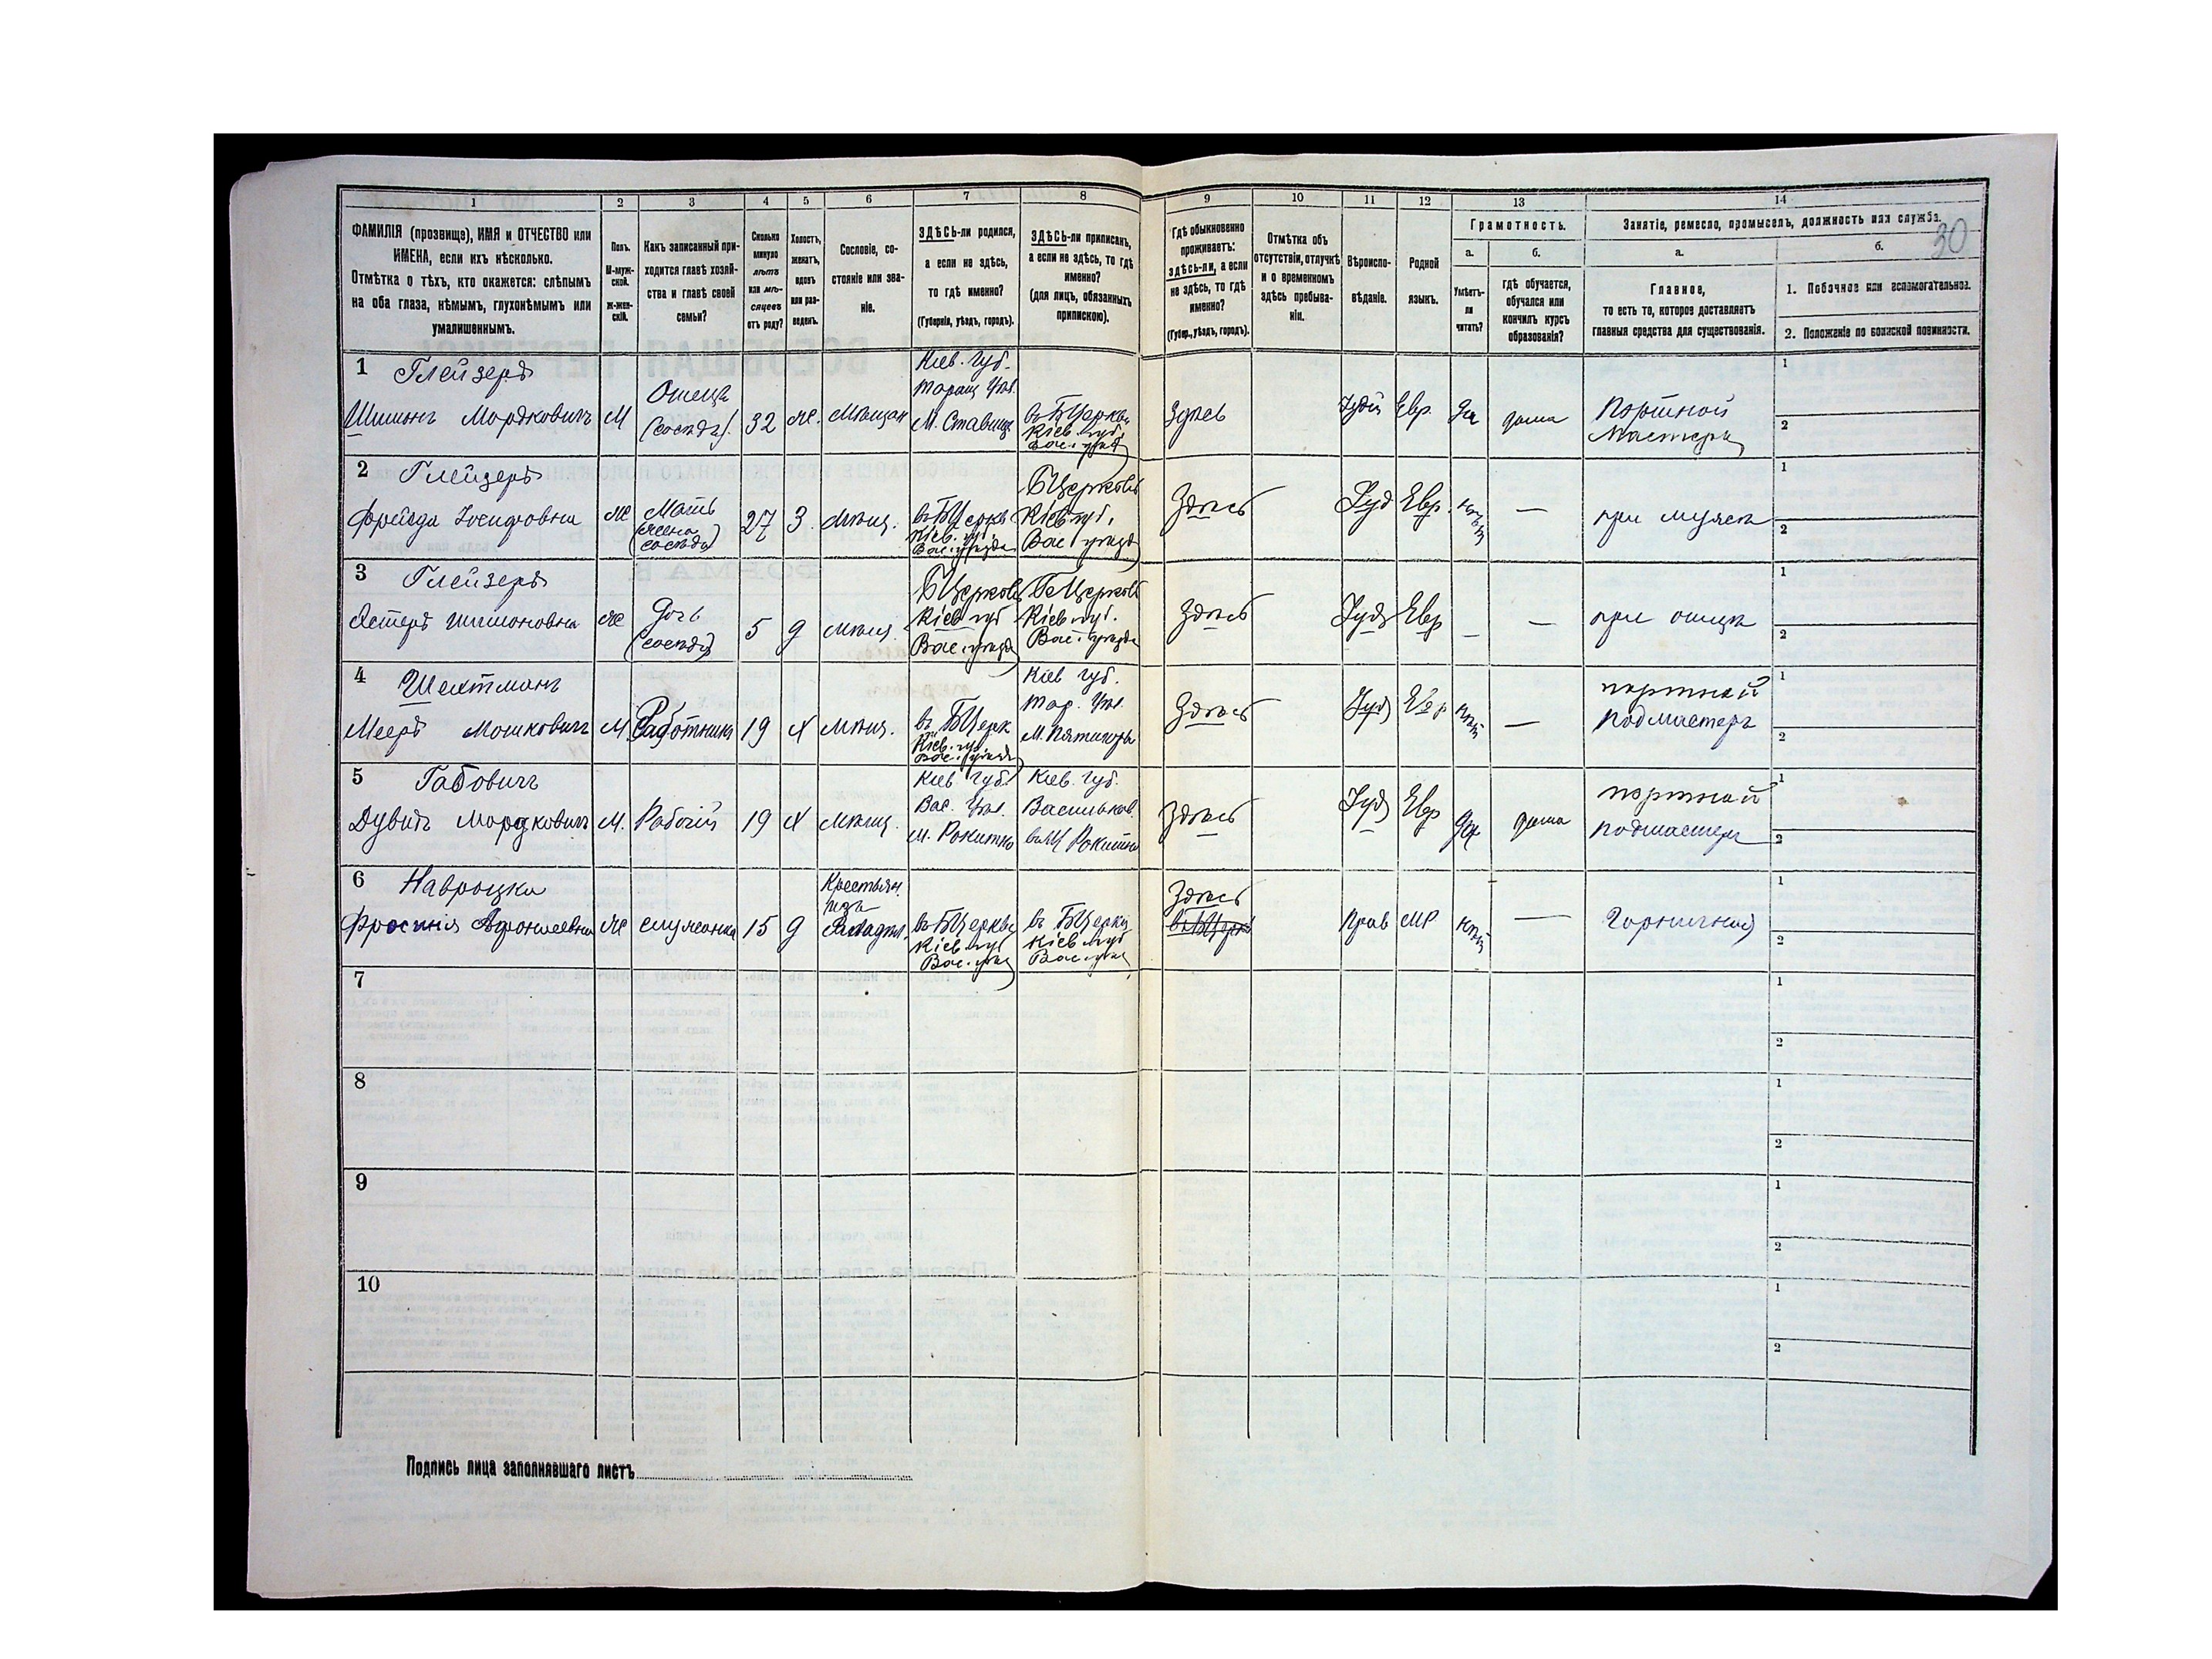 1 2 3 4 5 6 7 8 9 10 11 12 13 14
ФАМИЛІЯ (прозвище), ИМЯ и ОТЧЕСТВО или
ИМЕНА, если ихъ нѣсколько.
Отмѣтка о тѣхъ, кто окажется: слѣпымъ
на оба глаза, нѣмымъ, глухонѣмымъ или
умалишеннымъ.
Полъ.
М-муж-
ской.
Ж-жен-
скій.
Какъ записанный при-
ходится главѣ хозяй-
ства и главѣ своей
семьи?
Сколько
минуло
лѣтъ
или мѣ-
сяцевъ
отъ роду?
Холостъ,
женатъ,
вдовъ
или раз-
веденъ.
Сословіе, со-
стояніе или зва-
ніе.
ЗДѢСЬ-ли родился,
а если не здѣсь,
то гдѣ именно?
(Губернія, уѣздъ, городъ).
ЗДѢСЬ-ли приписанъ,
а если не здѣсь, то гдѣ
именно?
(для лицъ, обязанныхъ
припискою).
Гдѣ обыкновенно
проживаетъ:
здѣсь-ли, а если
не здѣсь, то гдѣ
именно?
(Губер., уѣздъ, городъ).
Отмѣтка объ
отсутствіи, отлучкѣ
и о временномъ
здѣсь пребыва-
ніи.
Вѣроиспо-
вѣданіе.
Родной
языкъ.
Грамотность.
а.
Умѣетъ-
ли
читать?
б.
гдѣ обучается,
обучался или
кончилъ курсъ
образованія?
Занятіе, ремесло, промыселъ, должность или служба.
30
а.
Главное,
то есть то, которое доставляетъ
главныя средства для существованія.
б.
1. Побочное или вспомогательное.
2. Положеніе по воинской повинности.
1 Глейзеръ
Шимонъ Мордковичъ
М
Отецъ
(сосѣдъ).
32
ж.
Мѣщан
Кіев. Губ.
Таращ Уѣз.
М. Ставище
въ БЦеркви
Кіев. губ.
Вас. уѣзд
Здѣсь
Іудей
Евр.
Да
дома
Портной
Мастеръ
1
2
2 Глейзеръ
Фрейда Іосифовна
Ж
Мать
(жена
сосѣда)
27
З.
Мѣщ.
въ БЦеркв
Кіев. губ.
Вас. уѣзда
БЦерковь
Кіев губ.
Вас. уѣзд
Здѣсь
Іуд
Евр.
нѣт
—
при мужѣ
1
2
3 Глейзеръ
Естеръ Шимоновна
Ж
Дочь
(сосѣда)
5
д
мѣщ.
БЦерковь
Кіев губ
Вас. уѣзда
БЦерковь
Кіев губ.
Вас. уѣзда
Здѣсь
Іуд
Евр
—
—
при отцѣ
1
2
4 Шехтманъ
Мееръ Мошковичъ
М
Работникъ
19
Х
Мѣщ.
въ БЦерк
Кіев. губ.
Вас. уѣзда
Кіев губ.
Тар. Уѣз.
М. Пятигоры
Здѣсь
Іуд
Евр
нѣт
—
портной
подмастеръ
1
2
5 Габовичъ
Дувидъ Мордковичъ
М.
Рабочій
19
Х
мѣщ.
Кіев Губ.
Вас. Уѣз.
М. Рокитно
Кіев. Губ.
Васильков.
въ М Рокитно
Здѣсь
Іуд
Евр
Да
дома
портной
подмастеръ
1
2
6 Навроцка
Фросинія
Ж
служанка
15
д
Крестьян.
изъ
въ БЦеркв
Кіев губ
Вас. уѣзд
въ БЦеркв
Кіев губ
Вас. уѣзд
Здѣсь
Прав
МР
нѣт
—
Горничная
1
2
7
1
2
8
1
2
9
1
2
10
1
2
Подпись лица заполнявшаго листъ